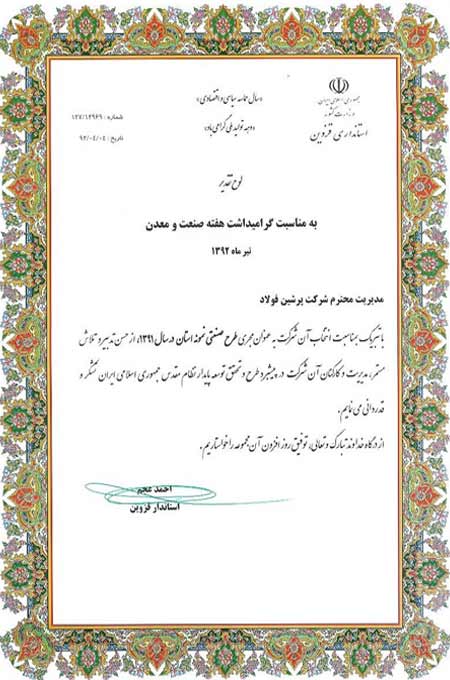 جمهوری اسلامی ایران
وزارت کشور
استانداری قزوین
«سال حماسه سیاسی و اقتصادی»
«دهه تولید ملی گرامی باد»
شماره : ۱۲۷/۱۲۹۶۹
تاریخ : ۹۲/۰۴/۰۴
لوح تقدیر
به مناسبت گرامیداشت هفته صنعت و معدن
تیر ماه ۱۳۹۲
مدیریت محترم شرکت پرشین فولاد
با تبریک بمناسبت انتخاب آن شرکت به عنوان مجری طرح صنعتی نمونه استان در سال ۱۳۹۱، از حسن تدبیر و تلاش
مستمر، مدیریت و کارکنان آن شرکت در پیشبرد طرح و تحقق توسعه پایدار نظام مقدس جمهوری اسلامی ایران تشکر و
قدردانی می نمایم.
از درگاه خداوند تبارک و تعالی، توفیق روز افزون آن مجموعه را خواستاریم.
احمد عجم
استاندار قزوین